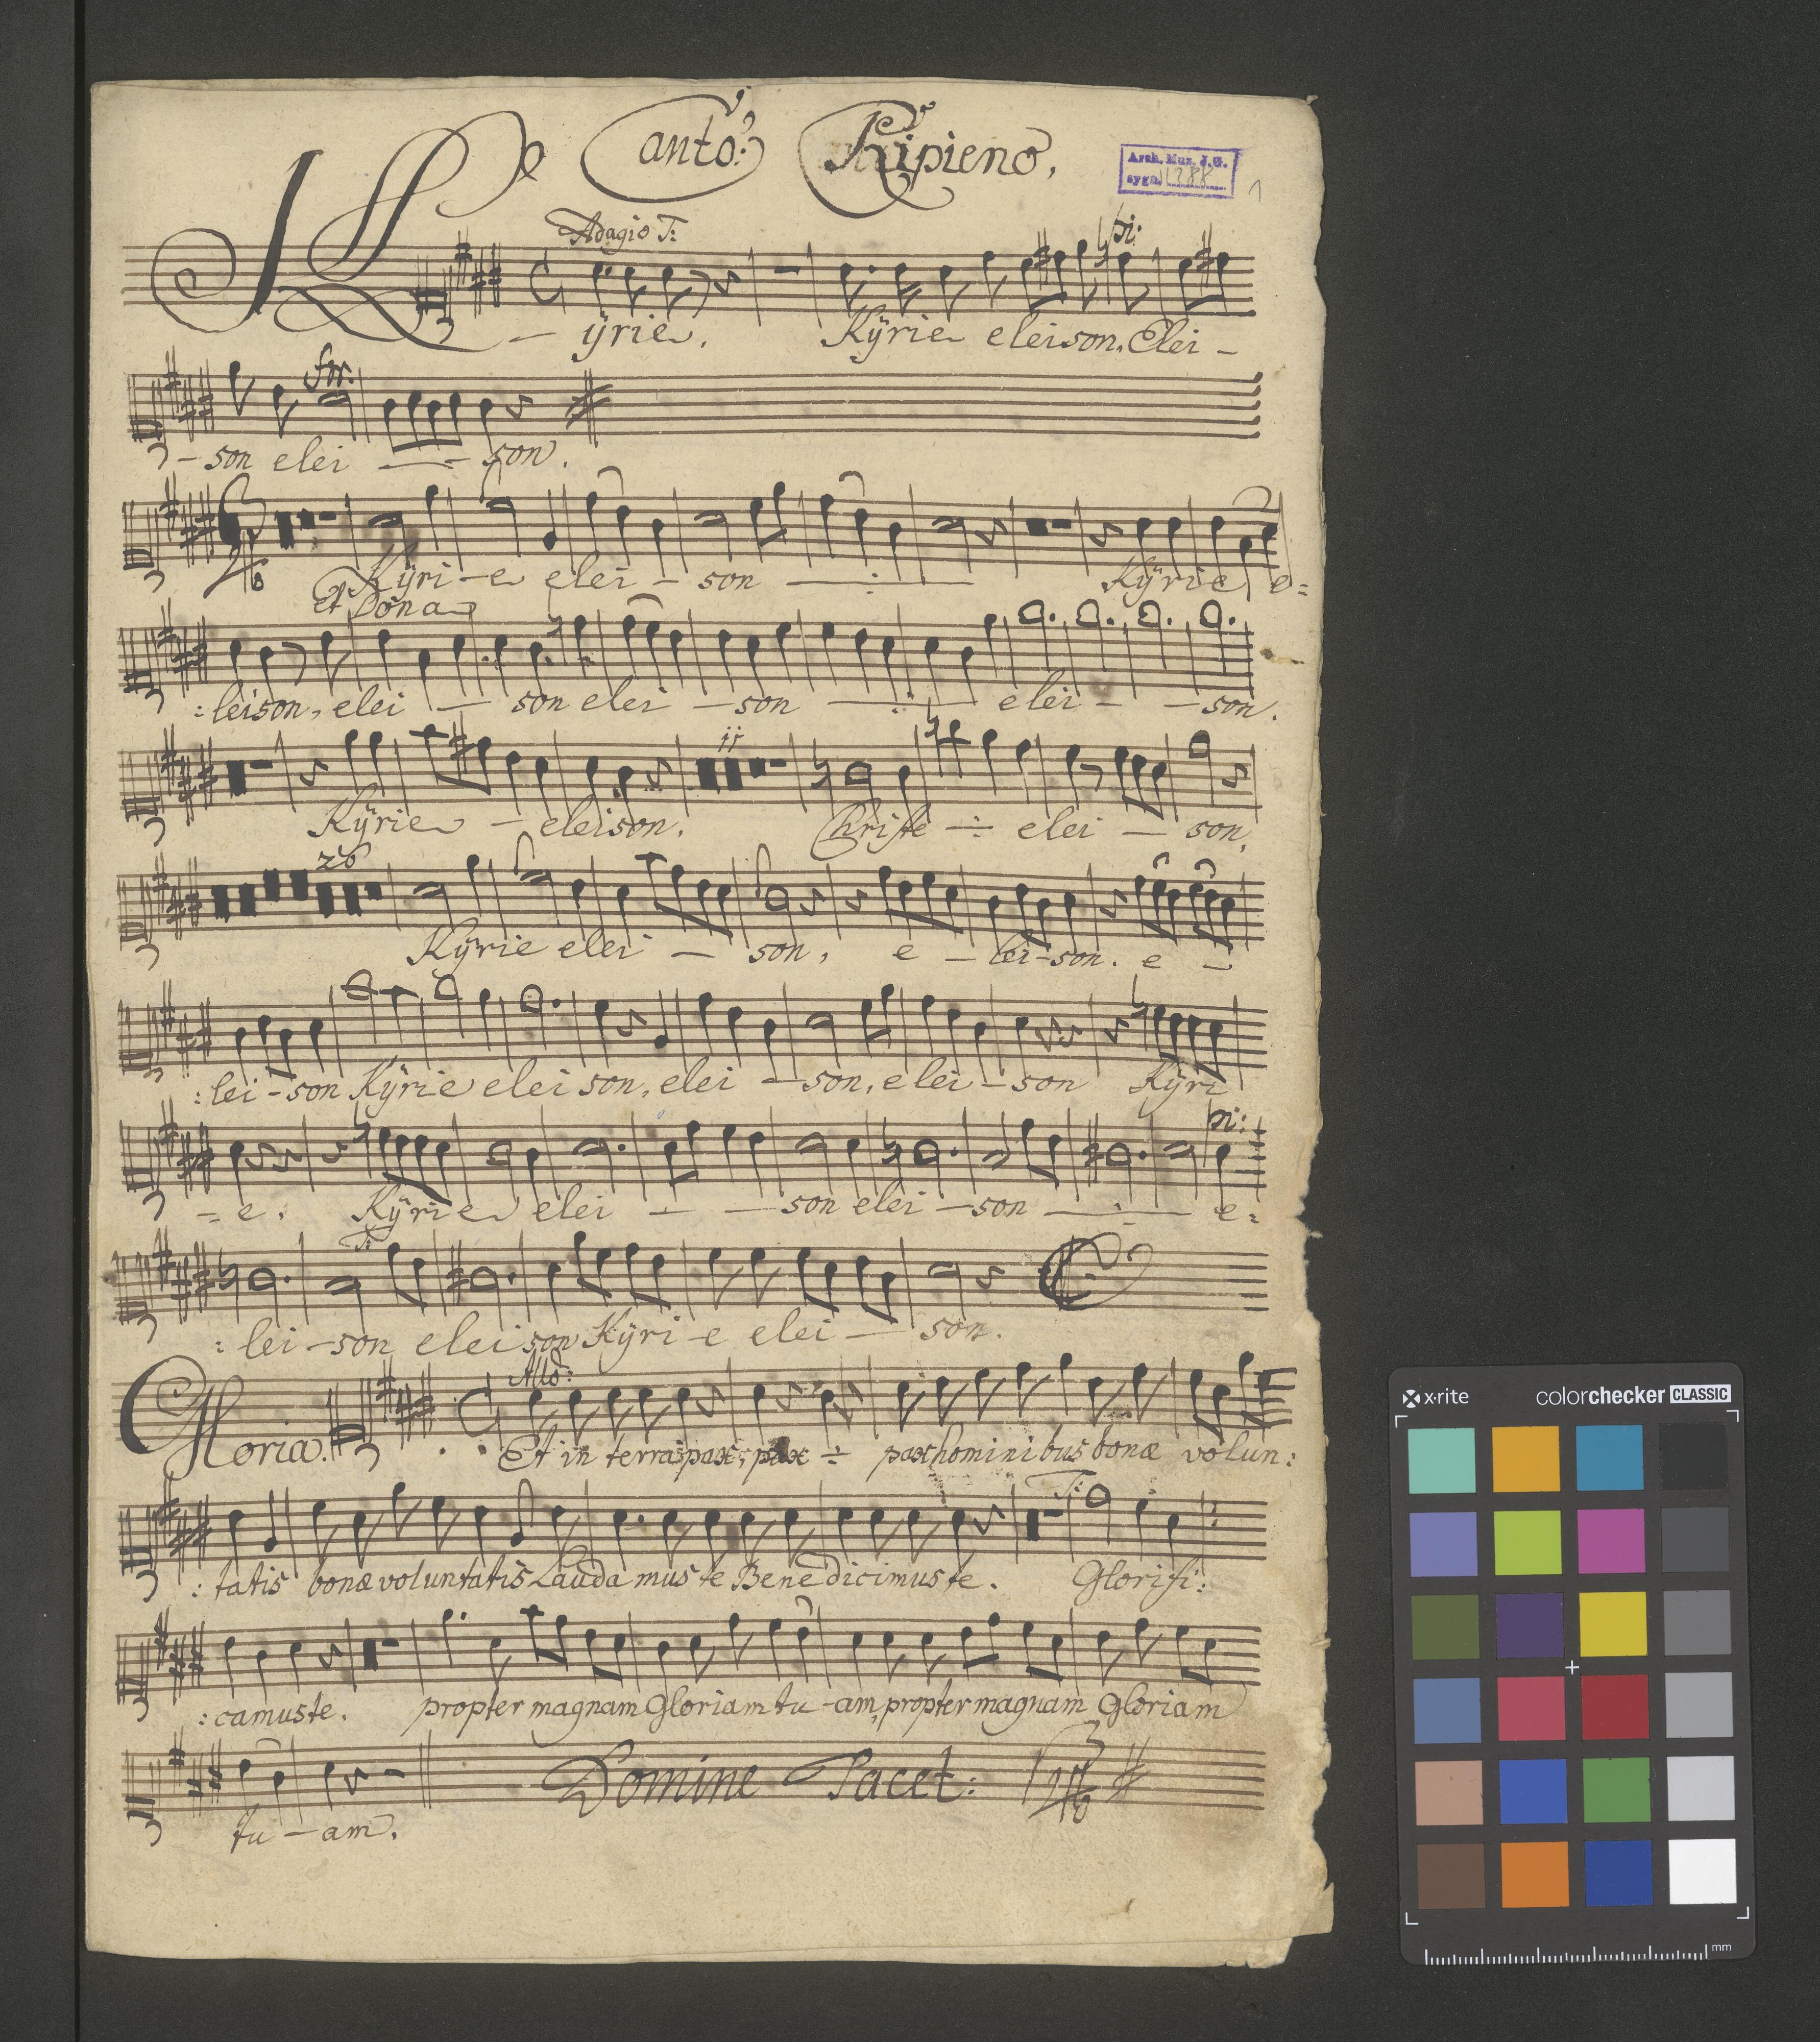 Canto: Ripieno.
Arch. Muz. J.G.
sygn.
1
Adagio T:
pi:
Kÿrie. Kÿrie eleison. Elei -
for.
- son elei - son.
Kÿri - e elei - son Kÿrie e=
Et Dona
:leison, elei - son elei - son elei - - son.
ii
Kÿrie - eleison. Christe elei - son,
26
Kÿrie elei - son, e - lei - son. e -
:lei - son Kÿrie eleison, elei - son, elei - son Kÿri
pi:
= e. Kÿrie elei - - son elei - son e=
T:
: lei - son eleison Kÿri - e elei - son.
Allo:
Gloria. Et in terra pax, pax pax hominibus bonæ volun:
T:
: tatis bonæ voluntatis Lauda muste Benedicimuste. Glorifi:
: camuste. propter magnam Gloriam tu - am, propter magnam Gloriam
Domine Tacet:
tu - am.
x-rite colorchecker CLASSIC
mm